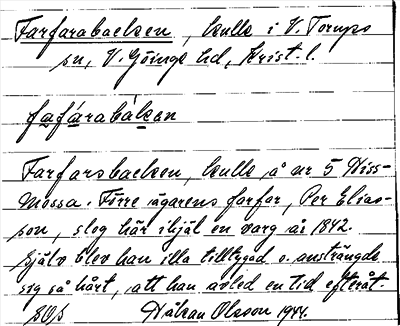 Farfarabacken, kulle i V. Torups
sn, V. Göinge hd, Krist. l.
fafárabákan
Farfarsbacken, kulle å nr 5 Hiss-
mossa. Förre ägarens farfar, Per Elias-
son, slog här ihjäl en varg år 1842.
Själv blev han illa tilltygad o. ansträngde
sig så hårt, att han avled en tid efteråt.
Håkan Olsson 1944.